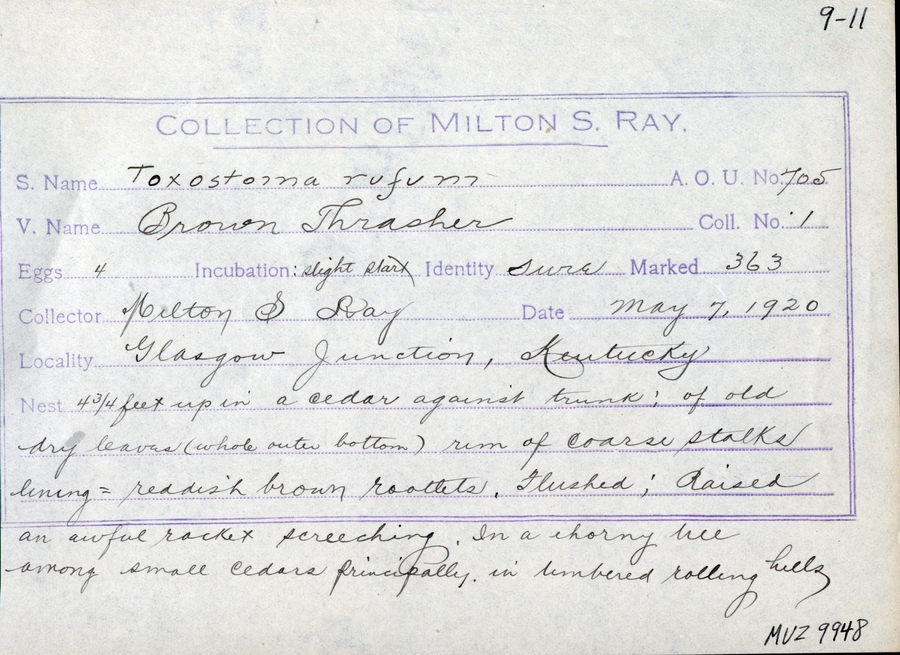 9-11
COLLECTION OF MILTON S. RAY.
S. Name Toxostoma rufum A. O. U. No. 705
V. Name Brown Thrasher Coll. No. 1
Eggs 4 Incubation: slight start Identity sure Marked 363
Collector Milton S Ray Date May 7, 1920
Locality Glasgow Junction, Kentucky
Nest 4 3/4 feet up in a cedar against trunk; of old
dry leaves (whole outer bottom) rim of coarse stalks
lining = reddish brown rootlets. Flushed; Raised
an awful racket screeching. In a thorny tree
among small cedars principally. in timbered rolling hills
MVZ 9948